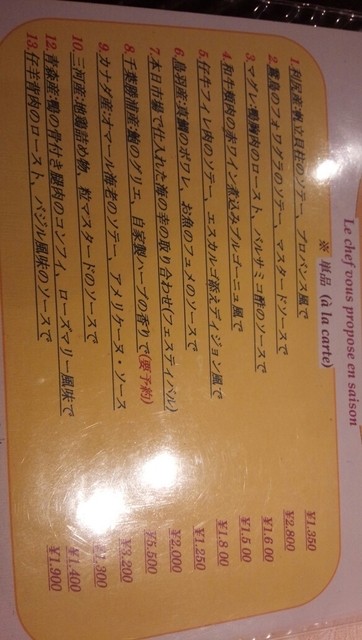 Le chef vous propose en saison
※ 単品 (à la carte)
1. 帆立貝柱のソテー、プロバンス風で ¥1,350
2. のフォワグラのソテー、マスタードソースで ¥2,800
3. マグレ鴨胸肉のロースト、バルサミコ酢のソースで ¥1,600
4. 和牛頬肉の赤ワイン煮込みブルゴーニュ風で ¥1,500
5. 仔牛フィレ肉のソテー、エスカルゴ添えディジョン風で ¥1,800
6. 鳥羽産:真鯛のポワレ、お魚のフュメのソースで ¥1,250
7. 本日市場で仕入れた海の幸の取り合わせ(フェスティバル) ¥2,000
8. 千葉勝浦産鮑のグリエ、自家製ハーブの香りで(要予約) ¥5,500
9. カナダ産:オマール海老のソテー、アメリケーヌ・ソース ¥3,200
10. 三河産:地鶏詰め物、粒マスタードのソースで
12. 青森産:鴨の骨付き腿肉のコンフィ、ローズマリー風味で ¥1,400
13. 仔羊背肉のロースト、バジル風味のソースで ¥1,900